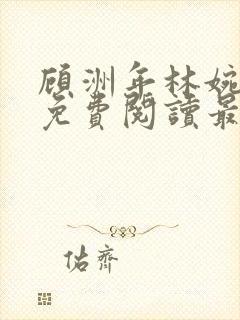 顾洲年林婉
免費閱讀最
佑齊